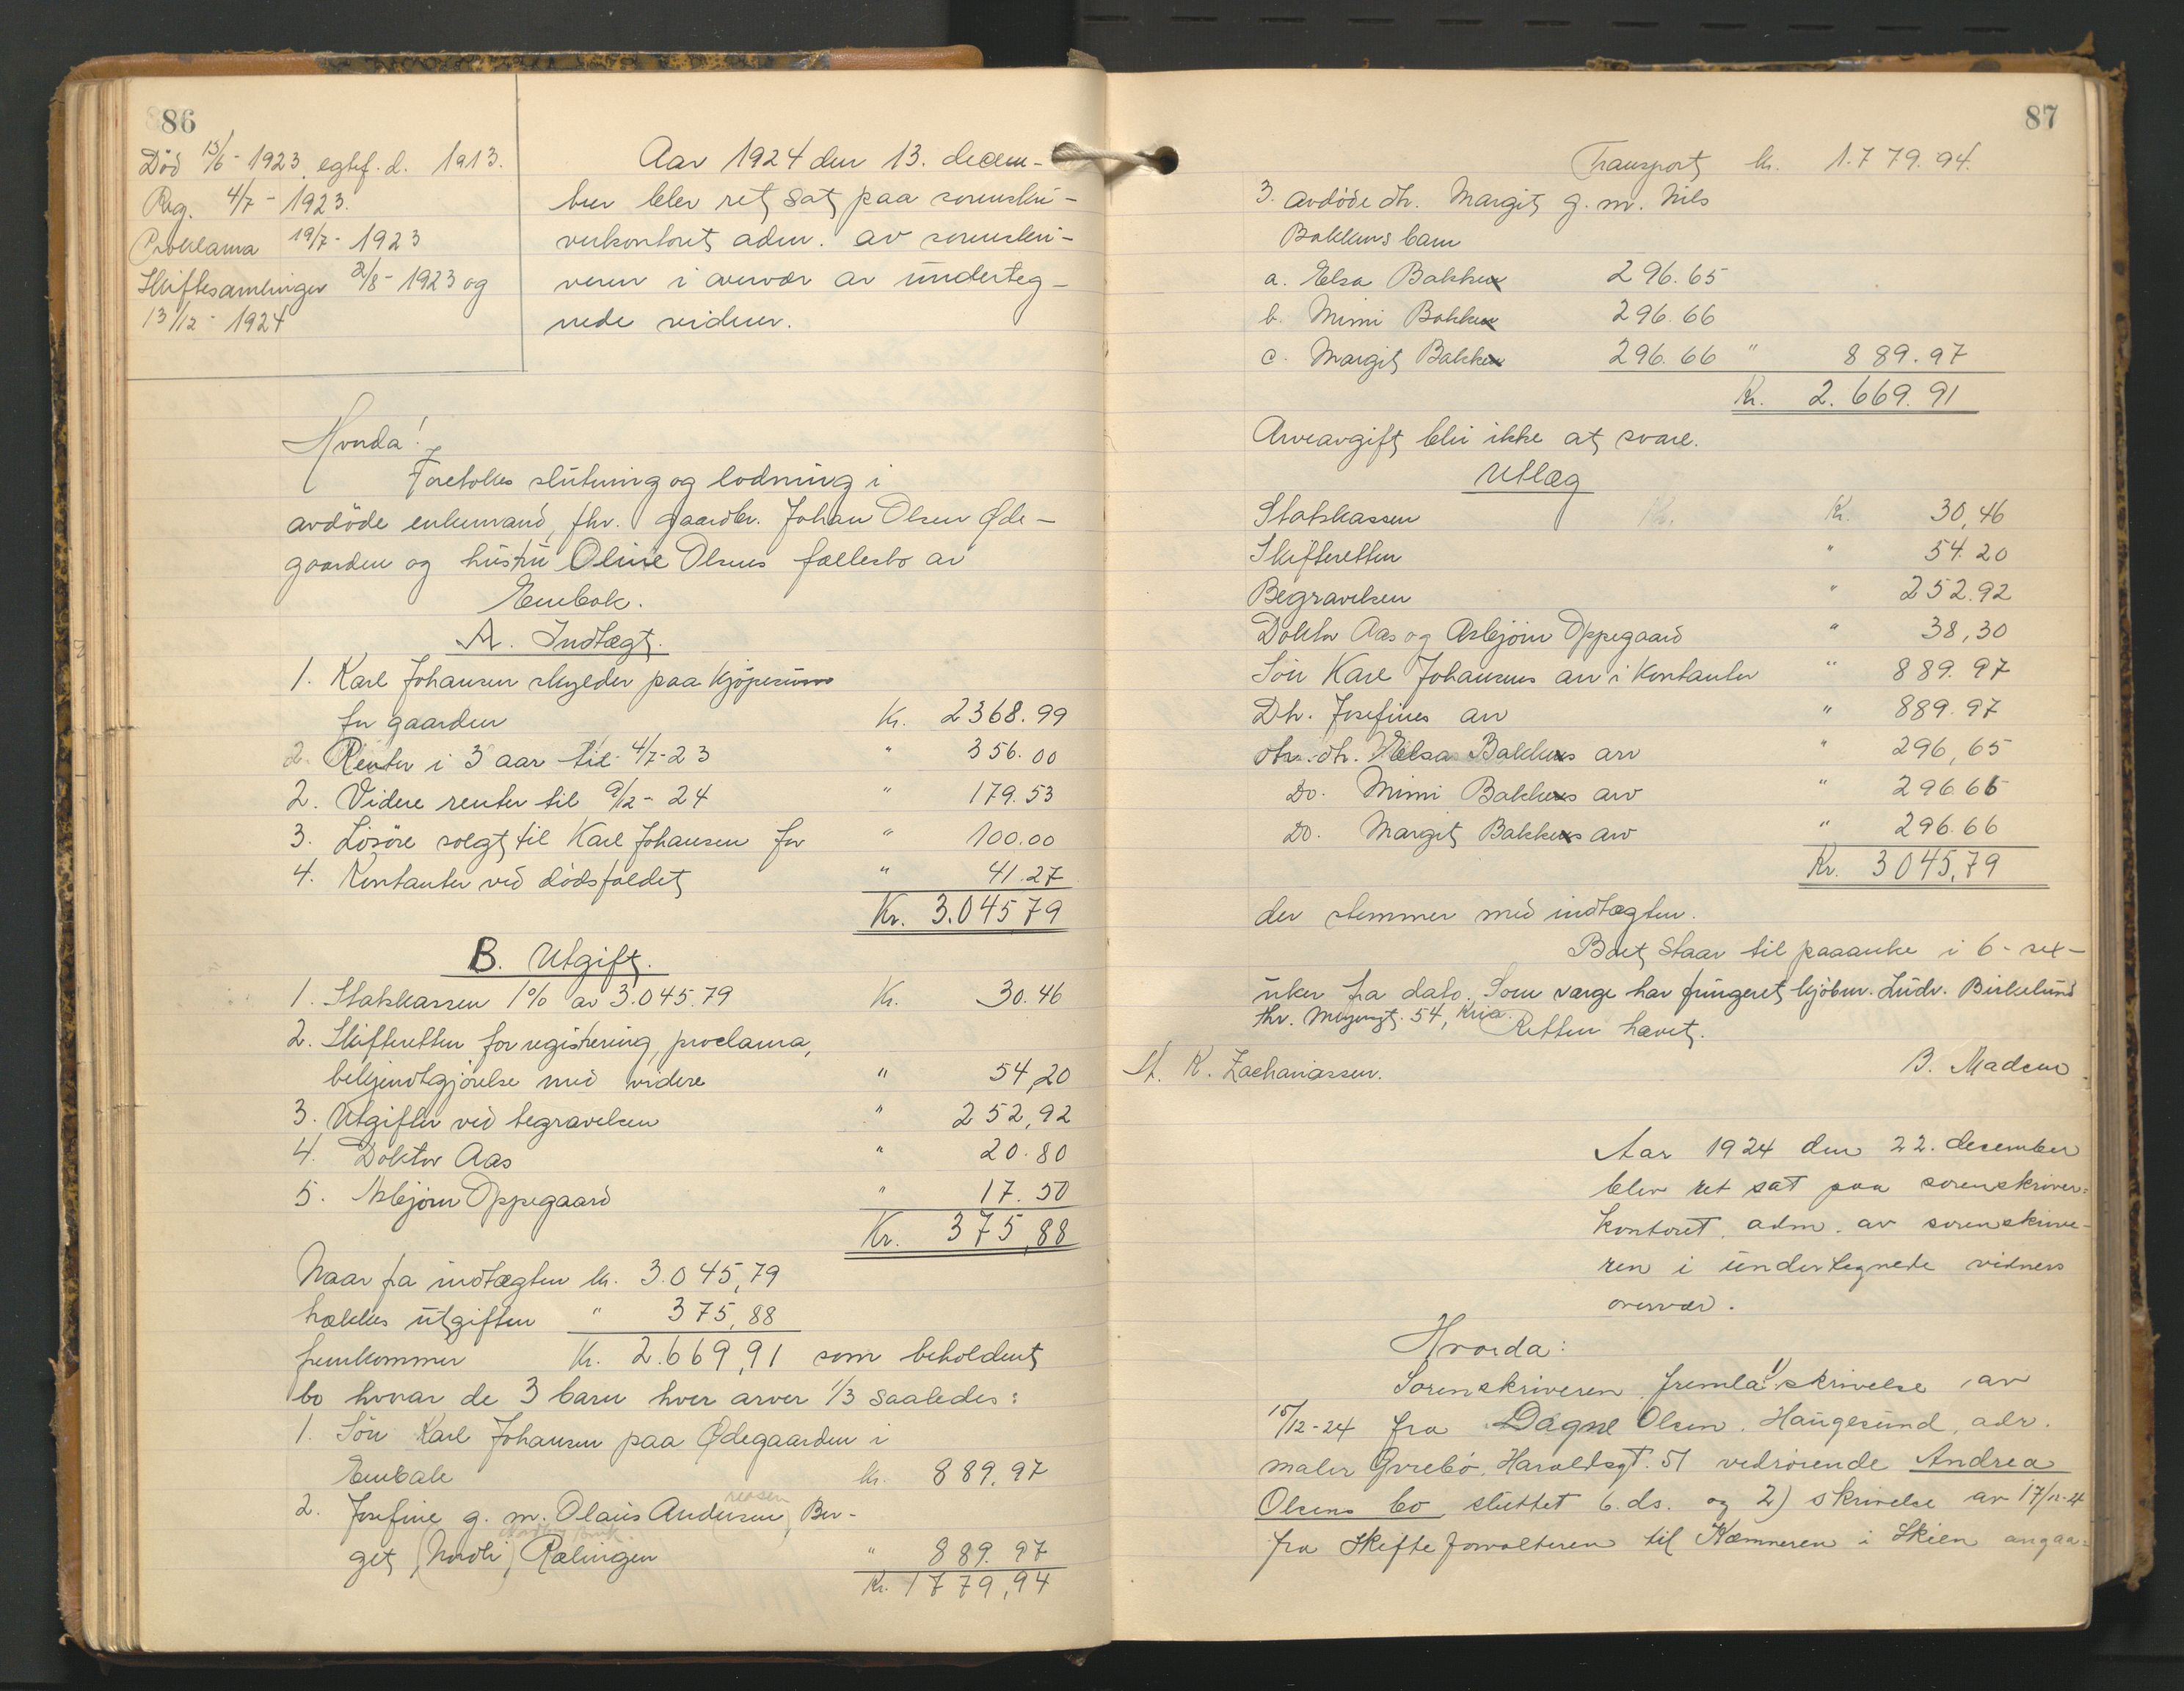 86
Död 15/6 - 1923, egtef. d. 1913.
Reg. 4/7 - 1923.
Proklama 19/7 - 1923
Skiftesamlinger 2/8 - 1923 og
13/12 - 1924
Aar 1924 den 13. decem-
ber blev ret sat paa sorenskri-
verkontoret adm. av sorenskri-
veren i overvær av underteg-
nede vidner.
Hvorda!
Foretokes slutning og lodning i
avdöde enkemand, fhr. gaardbr. Johan Olsen Øde-
gaarden og hustru Oline Olsens fællesbo av
Eembok.
A. Indtægt.
1. Karl Johansen skylder paa kjöpesum
for gaarden Kr. 2368.99
2. Renter i 3 aar til 4/7-23 " 356.00
2. Videre renter til 9/12 - 24 " 179.53
3. Lösöre solgt til Karl Johansen for " 100.00
4. Kontanter ved dödsfaldet " 41.27
Kr. 3.045 79
B. Utgift.
1. Statskassen 1% av 3.045.79 Kr. 30.46
2. Skifteretten for registrering, proclama,
bekjendtgjörelse med videre " 54,20
3. Utgifter ved begravelsen " 252,92
4. Doktor Aas " 20.80
5. Asbjörn Oppegaard " 17.50
Kr. 375,88
Naar fra indtægten kr. 3.045,79
trækkes utgiften " 375,88
fremkommer Kr. 2.669,91 som beholdent
bo hvorav de 3 barn hver arver 1/3 saaledes:
1. Sön Karl Johansen paa Ødegaarden i
Eembak kr. 889.97
2. Josefine g. m. Olaus Andersen, Ber-
get, (Nordli) Rælingen " 889.97
Kr. 1779,94
87
Transport kr. 1.779.94.
3. avdöde dtr. Margit g. m. Nils
Bakkens barn
a. Elsa Bakken 296.65
b. Mimi Bakken 296.66
c. Margit Bakken 296.66 " 889.97
Kr. 2.669.91
Arveavgift blir ikke at svare.
Utlæg
Statskassen Kr. 30,46
Skifteretten " 54.20
Begravelsen " 252.92
Doktor Aas og Asbjörn Oppegaard " 38,30
Sön Karl Johansens arv i kontanter " 889.97
Dtr. Josefines arv " 889.97
dtr. dtr. Elsa Bakkens arv " 296,65
Do. Mimi Bakkens arv " 296.66
Do. Margit Bakkens arv " 296.66
Kr. 3045,79
der stemmer med indtægten.
Boet staar til paaanke i 6 - sex -
uker fra dato. Som værge har fungeret kjöbm. Ludv. Birkelund
Thr. Meyersgt. 54, Kria.
Retten hævet.
St. K. Zachariassen. B. Madsen.
Aar 1924 den 22. december
blev ret sat paa sorenskriver=
kontoret, adm. av sorenskrive-
ren i undertegnede vidners
overvær.
Hvorda:
Sorenskriveren fremla 1) skrivelse av
15/12-24 fra Dagne Olsen, Haugesund, adr.
maler Gvrebö, Haraldsgt. 51 vedrörende Andrea
Olsens bo, sluttet 6. ds. og 2) skrivelse av 17/12-24
fra Skifteforvalteren til Kæmneren i Skien angaa=